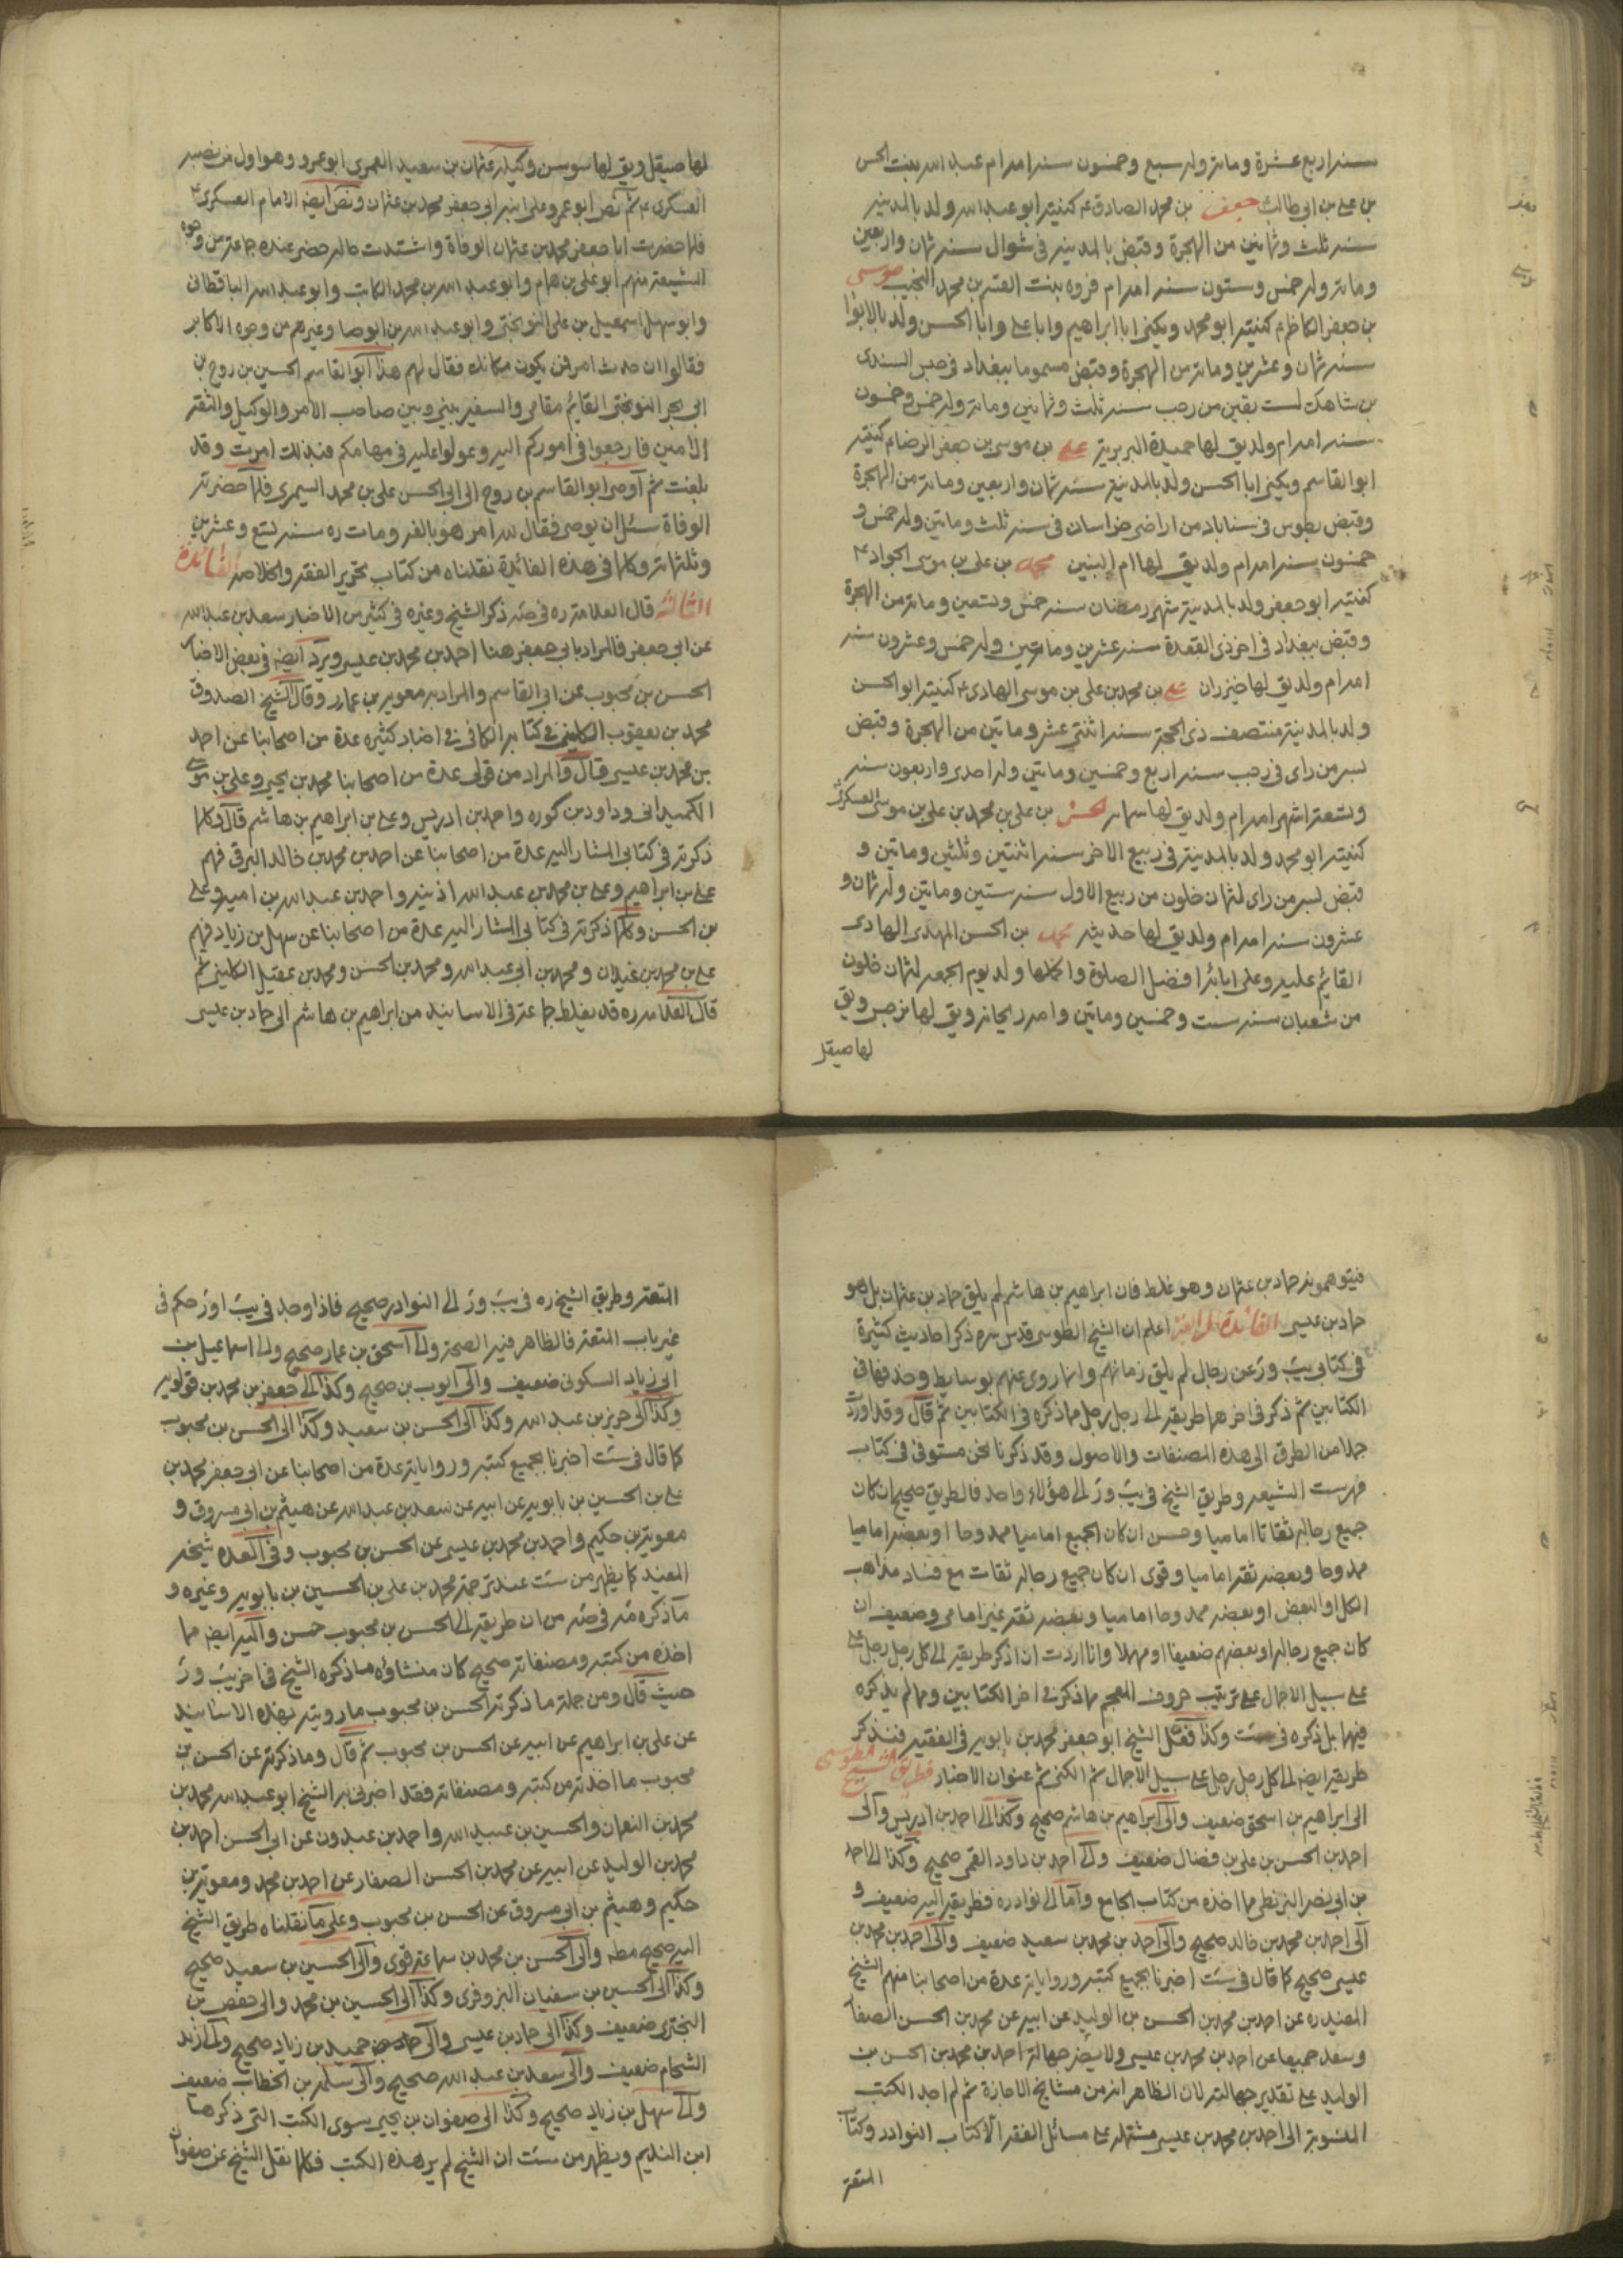 سنه اربع عشرة ومائة وله سبع وخمسون سنه امه ام عبد الله بنت الحسن
بن علي بن ابي طالب جعفر بن محمد الصادق ع كنيته ابو عبد الله ولد بالمدينة
سنه ثلث وثمانين من الهجرة وقبض بالمدينه في شوال سنه ثمان واربعين
ومائة وله خمس وستون سنه امه ام فروه بنت القسم بن محمد النجيب موسى
بن جعفر الكاظم ع كنيته ابو محمد ويكنى ابا ابراهيم وابا علي وابا الحسن ولد بالابوا
سنه ثمان وعشرين ومائة من الهجرة وقبض مسموما ببغداد في حبس السندي
بن شاهك لست بقين من رجب سنه ثلث وثمانين ومائة وله خمس وخمسون
سنه امه ام ولد يق لها حميدة البربرية علي بن موسى بن جعفر الرضا ع كنيته
ابو القاسم ويكنى ابا الحسن ولد بالمدينة سنه ثمان واربعين ومائة من الهجرة
وقبض بطوس في سناباد من اراضي خراسان في سنه ثلث ومائتين وله خمس و
خمسون سنه امه ام ولد يق لها ام البنين محمد بن علي بن موسى الجواد ع
كنيته ابو جعفر ولد بالمدينة شهر رمضان سنه خمس وتسعين ومائة من الهجرة
وقبض ببغداد في اخر ذي القعدة سنه عشرين ومائتين وله خمس وعشرون سنه
امه ام ولد يق لها خيزران علي بن محمد بن علي بن موسى الهادي ع كنيته ابو الحسن
ولد بالمدينة منتصف ذي الحجة سنه اثنتي عشر ومائتين من الهجرة وقبض
بسر من راى في رجب سنه اربع وخمسين ومائتين وله احدى واربعون سنه
وتسعة اشهر امه ام ولد يق لها سمانه الحسن بن علي بن محمد بن علي بن موسى العسكري
كنيته ابو محمد ولد بالمدينة في ربيع الاخر سنه اثنتين وثلثين ومائتين و
قبض بسر من راى لثمان خلون من ربيع الاول سنه ستين ومائتين وله ثمان و
عشرون سنه امه ام ولد يق لها حديثه محمد بن الحسن المهدي الهادي
القائم عليه وعلى ابائه افضل الصلوة واكملها ولد يوم الجمعه لثمان خلون
من شعبان سنه ست وخمسين ومائتين وامه ريحانه ويق لها نرجس ويق
لها صيقل
لها صيقل ويق لها سوسن وكيله عثمان بن سعيد العمري ابو عمرو وهو اول من نصبه
العسكري ع ثم نص ابو عمرو على ابنه ابي جعفر محمد بن عثمان ونص ايضه الامام العسكري ع
فلما حضرت ابا جعفر محمد بن عثمان الوفاة واشتدت حاله حضر عنده جماعة من وجوه
الشيعة منهم ابو علي بن همام وابو عبد الله بن محمد الكاتب وابو عبد الله الباقطاني
وابو سهل اسمعيل بن علي النوبختي وابو عبد الله بن ابوصا وغيرهم من وجوه الاكابر
فقالوا ان حدث امر فمن يكون مكانك فقال لهم هذا ابو القاسم الحسين بن روح بن
ابي بحر النوبختي القائم مقامي والسفير بيني وبين صاحب الامر والوكيل والثقة
الامين فارجعوا في اموركم اليه وعولوا عليه في مهامكم فبذلك امرت وقد
بلغت ثم اوصى ابو القاسم بن روح الى ابي الحسن علي بن محمد السيمري فلما حضرته
الوفاة سئل ان يوصى فقال لله امر هو بالغه ومات ره سنه تسع وعشرين
وثلثمائة وكلما في هذه الفائدة نقلناه من كتاب تحرير الفقه والخلاصه الفائدة
الثالثه قال العلامة ره في صه ذكر الشيخ وغيره في كثير من الاخبار سعد بن عبد الله
عن ابي جعفر فالمراد بابي جعفر هنا احمد بن محمد بن عيسى ويرد ايضه في بعض الاخبار
الحسن بن محبوب عن ابي القاسم والمراد به معويه بن عمار وقال الشيخ الصدوق
محمد بن يعقوب الكليني في كتابه الكافي في اخبار كثيره عدة من اصحابنا عن احمد
بن محمد بن عيسى قال والمراد من قولي عدة من اصحابنا محمد بن يحيى وعلي بن موسى
الكميداني وداود بن كوره واحمد بن ادريس وعلي بن ابراهيم بن هاشم قال وكلما
ذكرته في كتابي المشار اليه عدة من اصحابنا عن احمد بن محمد بن خالد البرقي فهم
علي بن ابراهيم وعلي بن محمد بن عبد الله اذينه واحمد بن عبد الله بن اميه وعلي
بن الحسن وكلما ذكرته في كتابي المشار اليه عدة من اصحابنا عن سهل بن زياد فهم
علي بن محمد بن غيلان ومحمد بن ابي عبد الله ومحمد بن الحسن ومحمد بن عقيل الكليني ثم
قال العلامه ره قد يغلط جماعة في الاسانيد من ابراهيم بن هاشم الى حماد بن عيسى
فيتوهمونه حماد بن عثمان وهو غلط فان ابراهيم بن هاشم لم يلق حماد بن عثمان بل هو
حماد بن عيسى الفائدة الرابعة اعلم ان الشيخ الطوسي قدس سره ذكر احاديث كثيرة
في كتابي يب ور عن رجال لم يلق زمانهم وانما روى عنهم بوسايط وحذفها في
الكتابين ثم ذكر في اخرهما طريقه الى رجل رجل مما ذكره في الكتابين ثم قال وقد اوردت
جملا من الطرق الى هذه المصنفات والاصول وقد ذكرنا نحن مستوفى في كتاب
فهرست الشيعه وطريق الشيخ في يب ور الى هؤلاء واحد فالطريق صحيح ان كان
جميع رجاله ثقاتا اماميا وحسن ان كان الجميع اماميا ممدوحا او بعضه اماميا
ممدوحا وبعضه ثقه اماميا وقوى ان كان جميع رجاله ثقات مع فساد مذاهب
الكل او البعض او بعضه ممدوحا اماميا وبعضه ثقه غير امامي وضعيف ان
كان جميع رجاله او بعضهم ضعيفا او مهملا وانا اردت ان اذكر طريقه الى كل رجل رجل على
على سبيل الاجمال على ترتيب حروف المعجم مما ذكر في اخر الكتابين ومما لم يذكره
فيهما بل ذكره في ست وكذا فعل الشيخ ابو جعفر محمد بن بابويه في الفقيه فنذكر
طريقه ايضه الى كل رجل رجل على سبيل الاجمال ثم الكنى ثم عنوان الاخبار فطرايق الشيخ الطوسي
الى ابراهيم بن اسحق ضعيف والى ابراهيم بن هاشم صحيح وكذا الى احمد بن ادريس والى
احمد بن الحسن بن علي بن فضال ضعيف والى احمد بن داود القمي صحيح وكذا الى احمد
بن ابي نصر البزنطي مما اخذه من كتاب الجامع واما الى نوادره فطريقه اليه ضعيف و
الى احمد بن محمد بن خالد صحيح والى احمد بن محمد بن سعيد ضعيف والى احمد بن محمد بن
عيسى صحيح كما قال في ست اخبرنا بجميع كتبه ورواياته عدة من اصحابنا منهم الشيخ
المفيد ره عن احمد بن محمد بن الحسن بن الوليد عن ابيه عن محمد بن الحسن الصفار
وسعد جميعا عن احمد بن محمد بن عيسى ولا يضر جهالة احمد بن محمد بن الحسن بن
الوليد على تقدير جهالته لان الظاهر انه من مشايخ الاجازة ثم لم اجد الكتب
المنسوبة الى احمد بن محمد بن عيسى مشتملة على مسائل الفقه الا كتاب النوادر وكتاب
المتعة
المتعة وطريق الشيخ ره في يب ور الى النوادر صحيح فاذا وجد في يب او ر حكم في
غير باب المتعة فالظاهر فيه الصحة والى اسحق بن عمار صحيح والى اسماعيل بن
ابي زياد السكوني ضعيف والى ايوب بن صحيح وكذا الى جعفر بن محمد بن قولويه
وكذا الى حريز بن عبد الله وكذا الى الحسن بن سعيد وكذا الى الحسن بن محبوب
كما قال في ست اخبرنا بجميع كتبه ورواياته عدة من اصحابنا عن ابي جعفر محمد بن
علي بن الحسين بن بابويه عن ابيه عن سعد بن عبد الله عن هيثم بن ابي مسروق و
معوية بن حكيم واحمد بن محمد بن عيسى عن الحسن بن محبوب وفي العده شيخه
المفيد كما يظهر من ست عند ترجمة محمد بن علي بن الحسين بن بابويه وغيره و
ما ذكره مه في صه من ان طريقه الى الحسن بن محبوب حسن واليه ايضه مما
اخذه من كتبه ومصنفاته صحيح كان منشاؤه ما ذكره الشيخ في اخر يب ور
حيث قال ومن جملة ما ذكرته الحسن بن محبوب ما رويته بهذه الاسانيد
عن علي بن ابراهيم عن ابيه عن الحسن بن محبوب ثم قال وما ذكرته عن الحسن بن
محبوب ما اخذته من كتبه ومصنفاته فقد اخبرني به الشيخ ابو عبد الله محمد بن
محمد بن النعمان والحسين بن عبيد الله واحمد بن عبدون عن ابي الحسن احمد بن
محمد بن الوليد عن ابيه عن محمد بن الحسن الصفار عن احمد بن محمد ومعوية بن
حكيم وهيثم بن ابي مسروق عن الحسن بن محبوب وعلى ما نقلناه طريق الشيخ
اليه صحيح مطه والى الحسن بن محمد بن سماعة قوي والى الحسين بن سعيد صحيح
وكذا الى الحسين بن سفيان البزوفري وكذا الى الحسين بن محمد والى حفص بن
البختري ضعيف وكذا الى حماد بن عيسى والى حميد بن زياد صحيح والى زيد
الشحام ضعيف والى سعد بن عبد الله صحيح والى سلمه بن الخطاب ضعيف
والى سهل بن زياد صحيح وكذا الى صفوان بن يحيى سوى الكتب التي ذكرها
ابن النديم ويظهر من ست ان الشيخ لم ير هذه الكتب فكلما نقل الشيخ عن صفوان